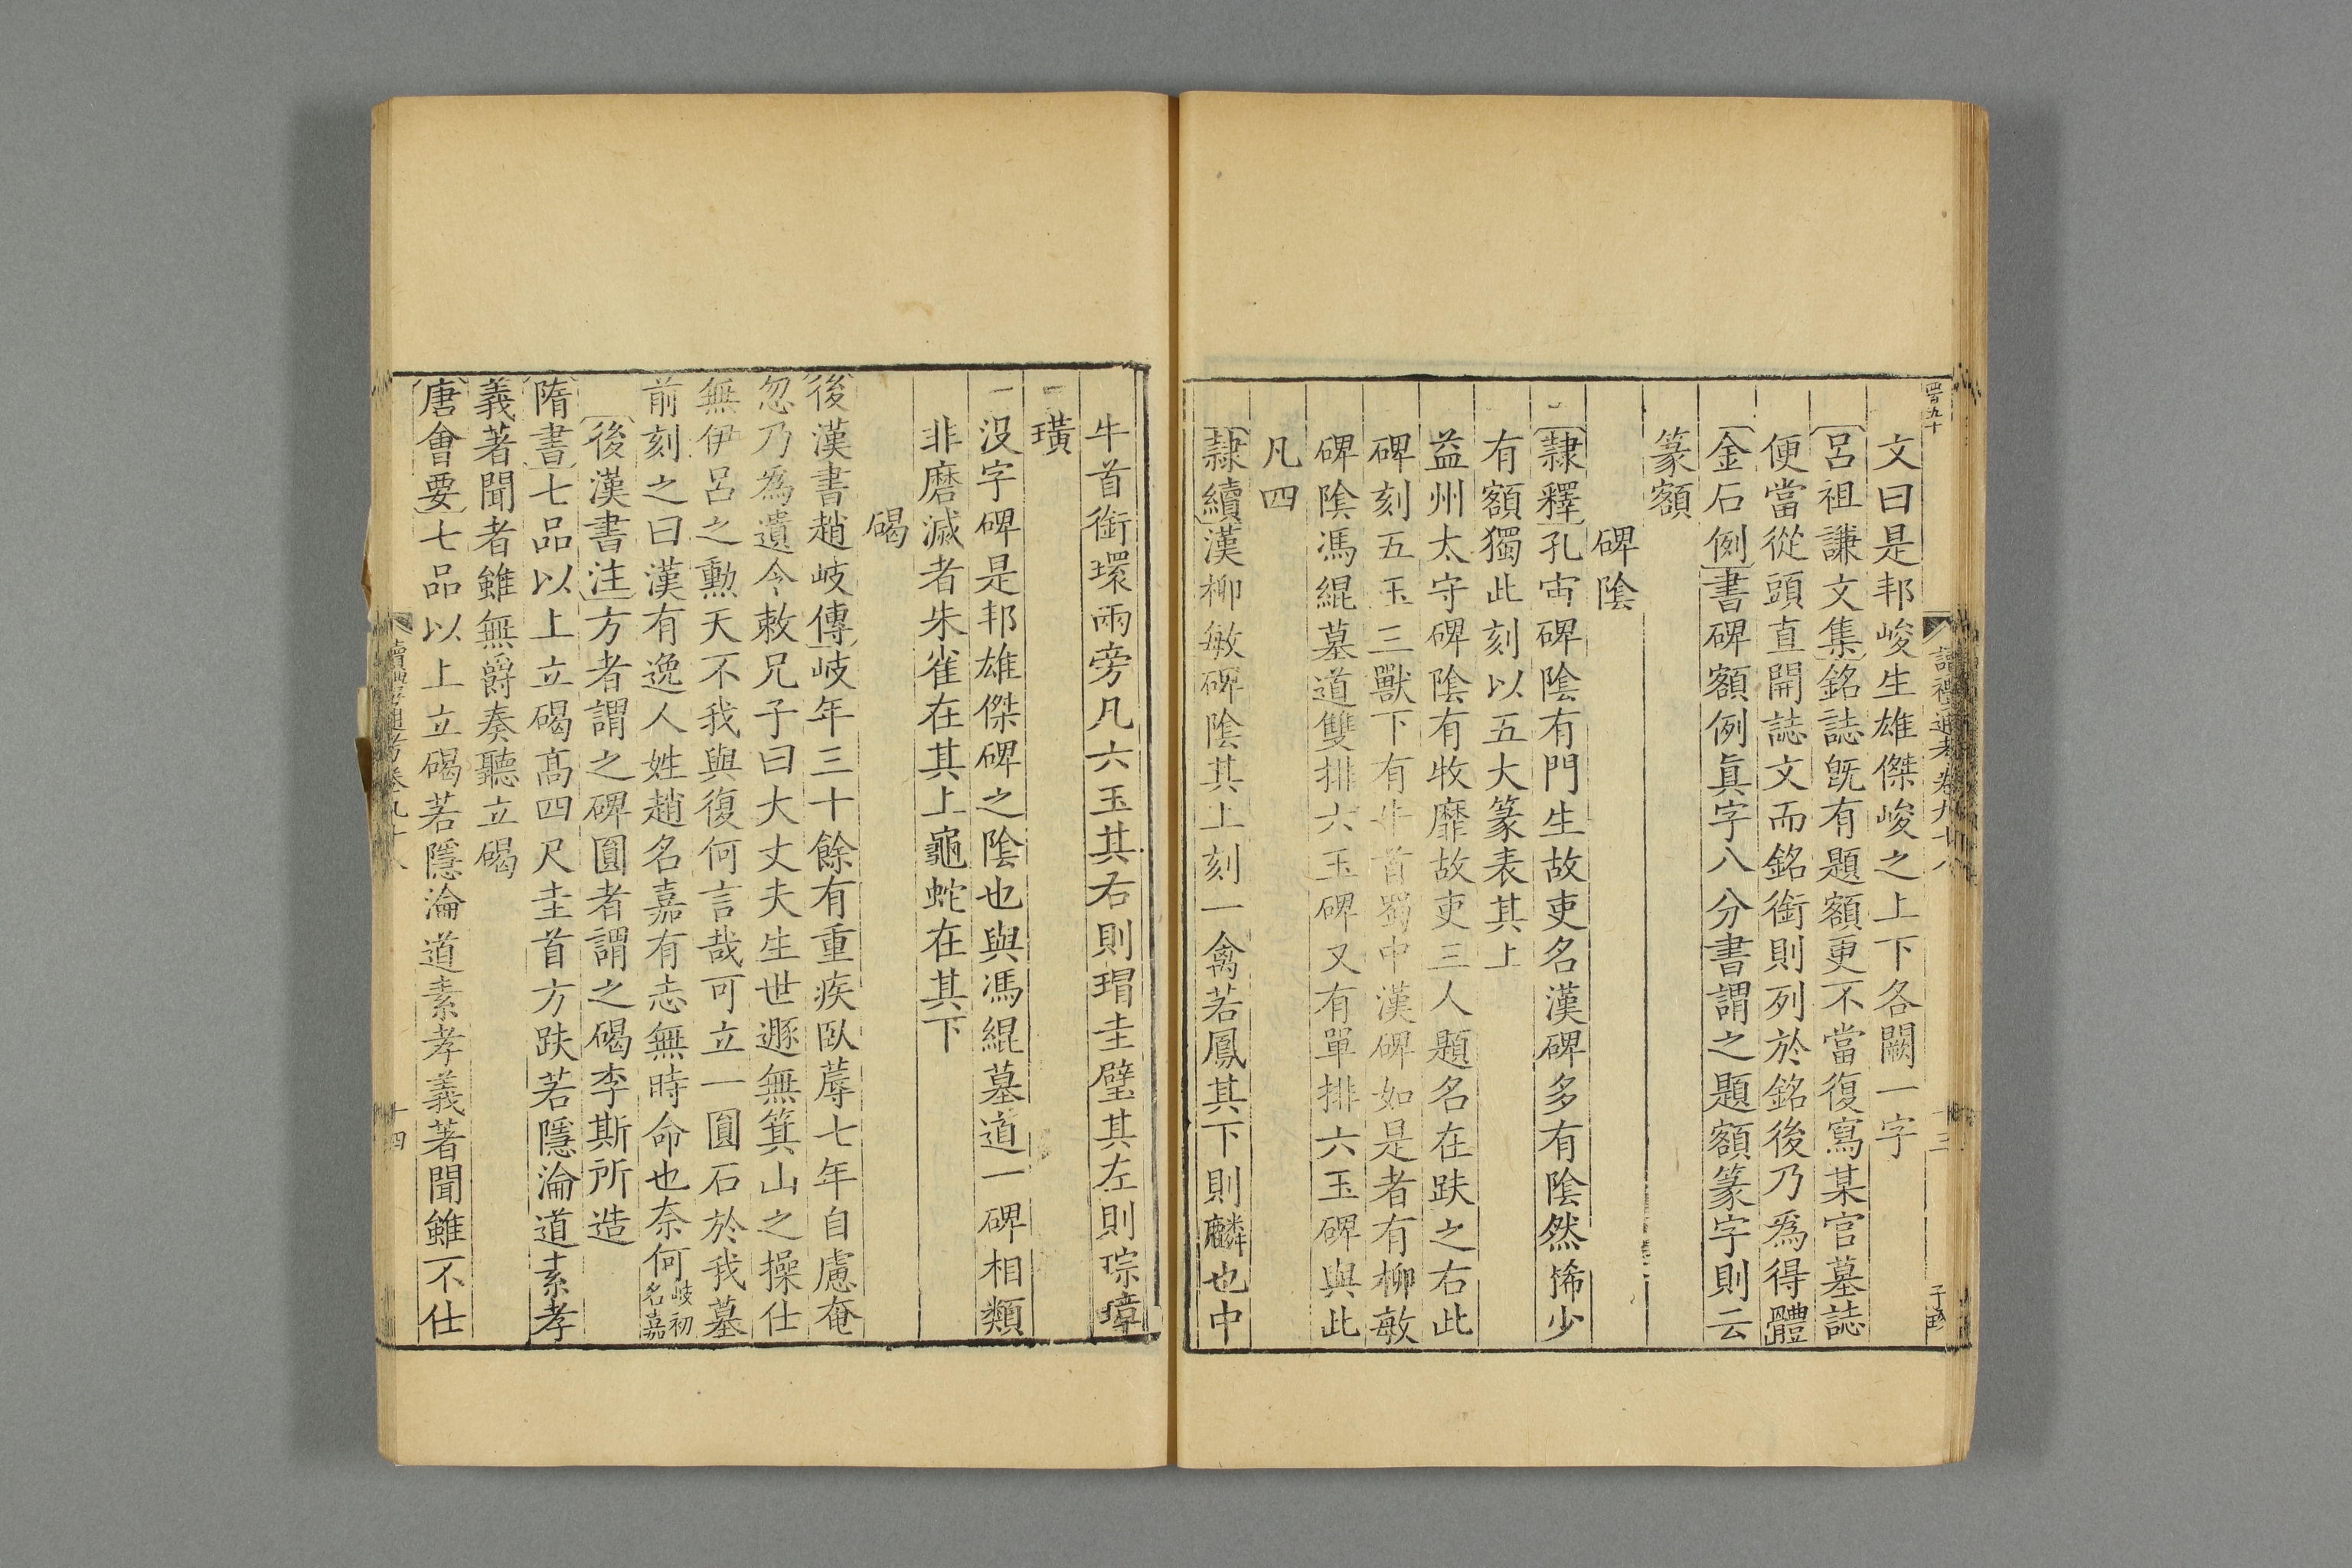 文曰是邦峻生雄傑峻之上下各闕一字
呂祖謙文集銘誌旣有題額更不當復寫某官墓誌
便當從頭直開誌文而銘銜則列於銘後乃爲得體
金石例書碑額例眞字八分書謂之題額篆字則云
篆額
碑陰
隷釋孔宙碑陰有門生故吏名漢碑多有陰然悕少
有額獨此刻以五大篆表其上
益州太守碑陰有牧靡故吏三人題名在趺之右此
碑刻五玉三獸下有牛首蜀中漢碑如是者有柳敏
碑陰馮緄墓道雙排六玉碑又有單排六玉碑與此
凡四
隷續漢柳敏碑陰其上刻一禽若鳳其下則麟也中
牛首銜環兩旁凡六玉其右則瑁圭璧其左則琮璋
璜
没字碑是邦雄傑碑之陰也與馮緄墓道一碑相類
非磨滅者朱雀在其上龜蛇在其下
碣
後漢書趙岐傳岐年三十餘有重疾臥蓐七年自慮奄
忽乃爲遺令敕兄子曰大丈夫生世遯無箕山之操仕
無伊呂之勳天不我與復何言哉可立一圓石於我墓
前刻之曰漢有逸人姓趙名嘉有志無時命也奈何岐初名嘉
後漢書注方者謂之碑圓者謂之碣李斯所造
隋書七品以上立碣高四尺圭首方趺若隱淪道素孝
義著聞者雖無爵奏聽立碣
唐會要七品以上立碣若隱淪道素孝義著聞雖不仕
讀禮通考卷九十八
十四